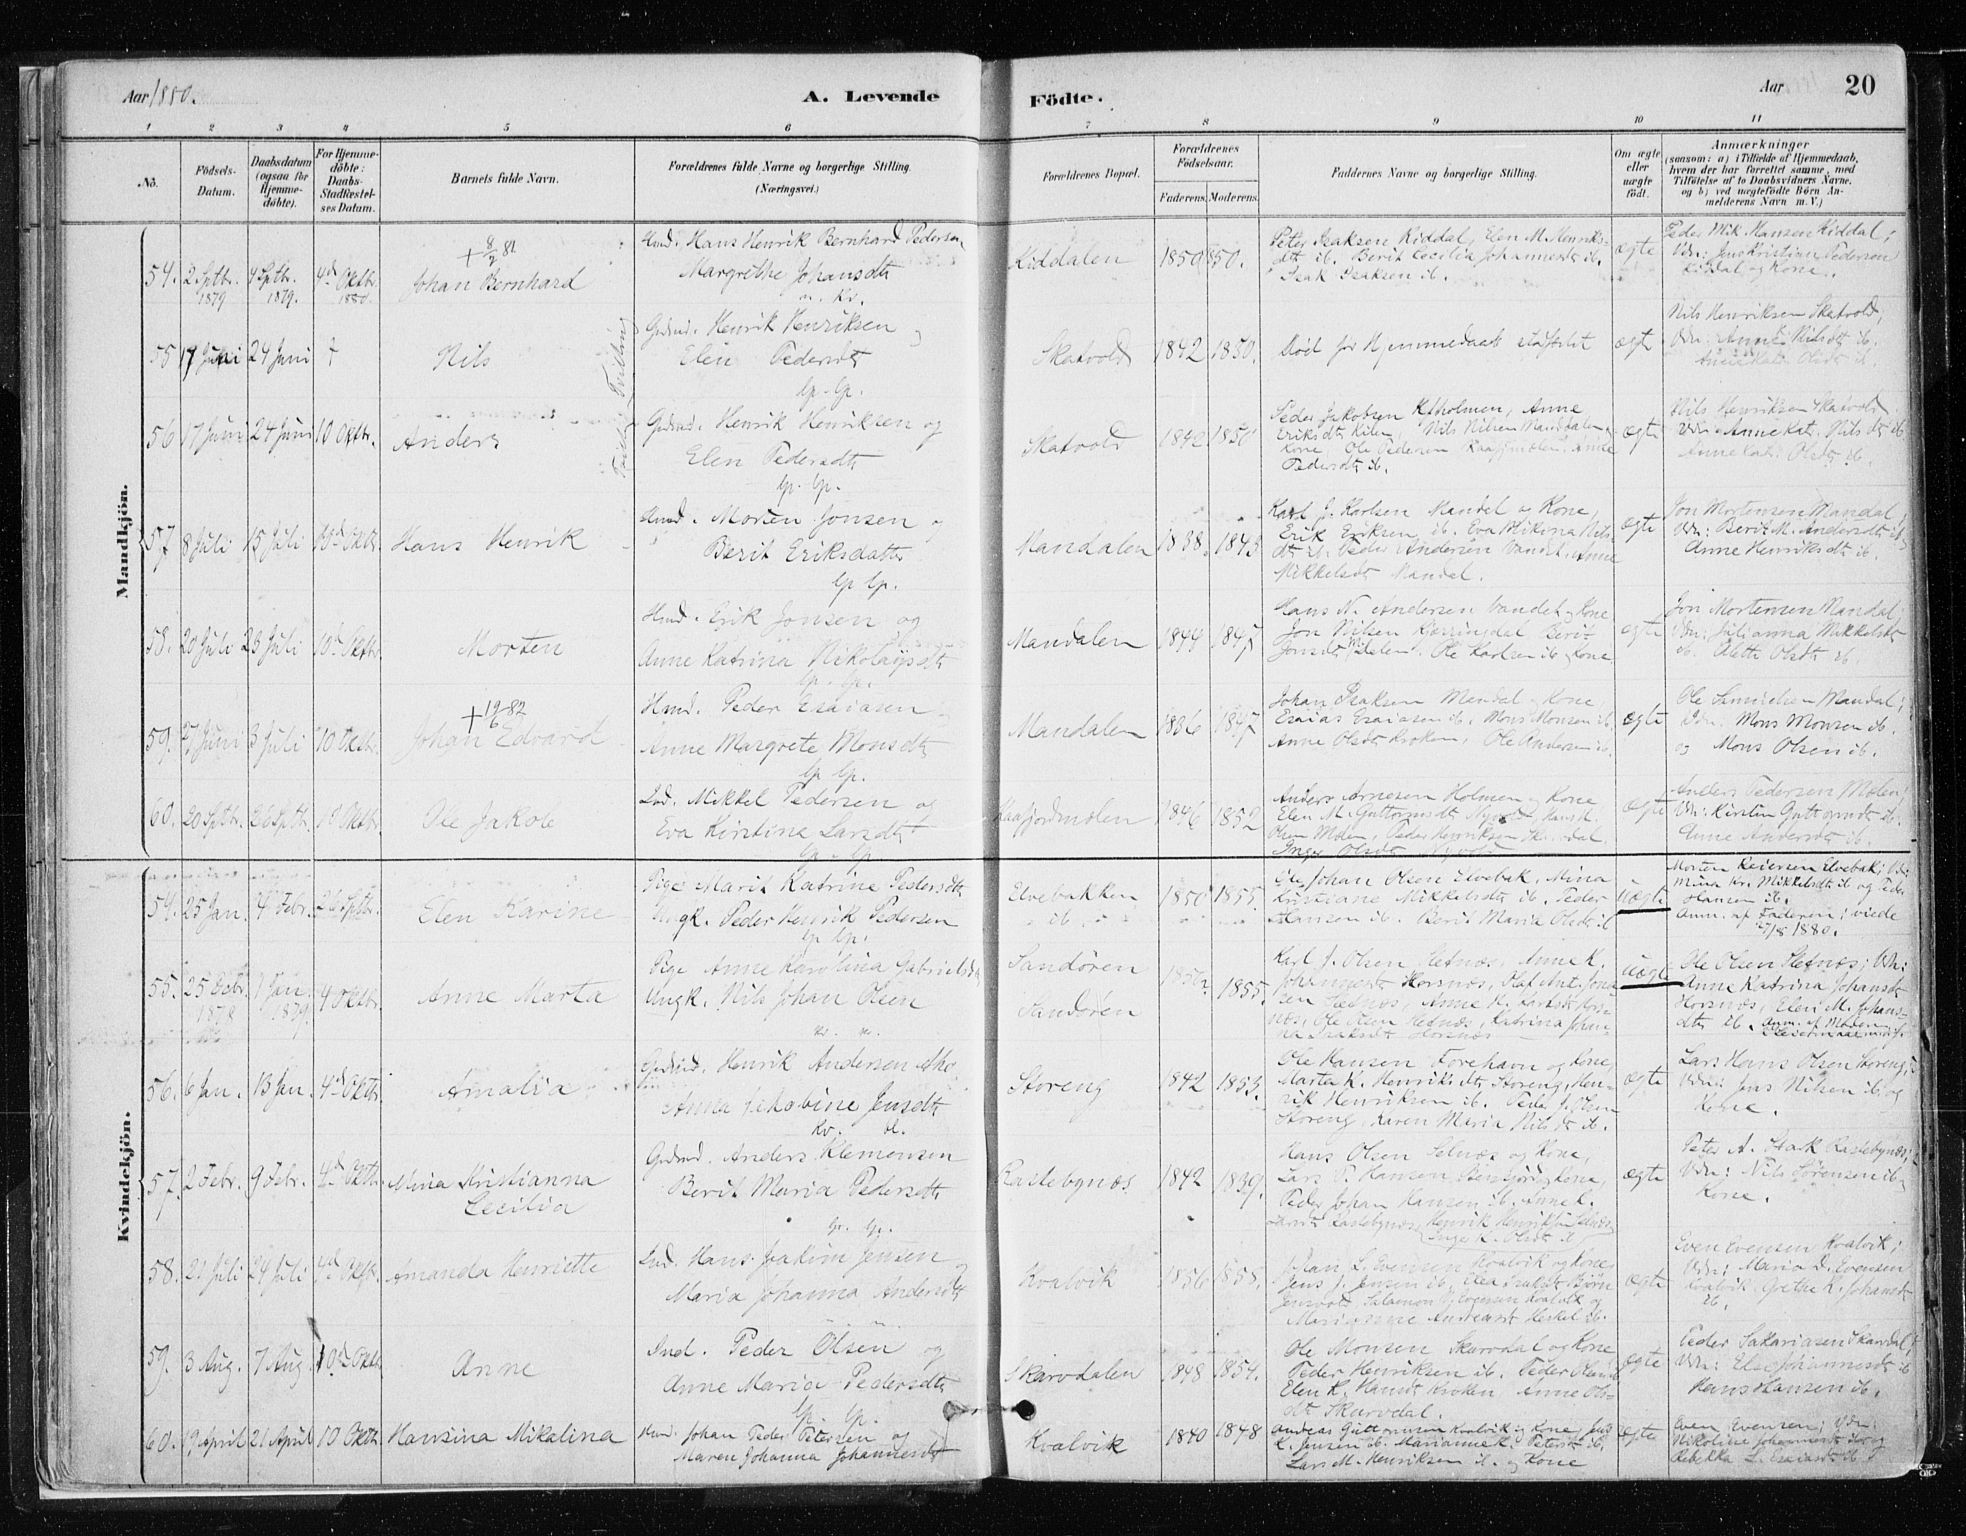 Aar 1880.
A. Levende
Födte.
Aar
20
1 2 3 4 5 6 7 8 9 10 11
No.
Födsels-Datum.
Daabsdatum (ogsaa for Hjemmedöbte).
For Hjemmedöbte: Daabs-Stadfæstelses Datum.
Barnets fulde Navn.
Forældrenes fulde Navne og borgerlige Stilling. (Næringsvei.)
Forældrenes Bopæl.
Forældrenes Födselsaar.
Faderens. Moderens.
Faddernes Navne og borgerlige Stilling.
Om ægte eller uægte födt.
Anmærkninger
(saasom: a) i Tilfælde af Hjemmedaab, hvem der har forrettet samme, med Tilföielse af to Daabsvidners Navne, og b) ved uægtefödte Börn Anmelderens Navn m. V.)
Mandkjön.
54. 2 Sptbr. 1879 4 Sptbr. 1879. 4de Oktbr. 1880. + 8/2 81 Johan Bernhard
Hmd. Hans Henrik Bernhard Pedersen,
Margrethe Johansdtr
n. Kv.
Kiddalen 1850 1850.
Peter Isaksen Kiddal, Elen M. Henriks-
dtr ib. Berit Cecilia Johannesdtr ib.
Isak Isaksen ib.
ægte
Peder Mik Hansen Kiddal;
Vdn: Jens Kristian Pedersen
Kiddal og Kone.
55 17 Juni 24 Juni † Nils
Tvilling
Gdmd. Henrik Henriksen og
Elen Pedersdtr
lp. lp.
Skatvold 1842 1850.
Död før Hjemmedaab stadfæstet
ægte
Nils Henriksen Skatvold,
Vdn: Anne K. Nilsdtr ib.
Anne Kat. Olsdtr ib.
56 17 Juni 24 Juni 10 Oktbr. Anders
Gdmd. Henrik Henriksen og
Elen Pedersdtr
lp. lp.
Skatvold 1842 1850
Peder Jakobsen Kjholmen, Anne
Eriksdtr Kilen, Nils Nilsen Manddalen og
Kone, Ole Pedersen Kaafjmælen, Anne
Pedersdtr ib.
ægte
Nils Henriksen Skatvold
Vdn. Anne Kat. Nilsdtr ib
Anne Kat. Olsdtr ib.
57. 8 Juli 15 Juli 10de Oktbr. Hans Henrik
Hmd. Morten Jonsen og
Berit Eriksdatter
lp lp.
Mandalen 1838. 1843
Karl J. Karlsen Mandal og Kone,
Erik Eriksen ib. Eva Mikkena Nils-
dtr ib. Peder Andersen Vandet, Anne
Mikkelsdtr Mandal.
ægte
Jon Mortensen Mandal
Vdn: Berit M. Andersdtr ib og
Anne Henriksdtr ib.
58. 20 Juli 23 Juli 10de Oktbr. Morten
Hmd. Erik Jonsen og
Anne Katrina Nikolaysdtr
lp. lp.
Mandalen 1844 1847
Hans N. Andersen Vandet og Kone
Jon Nilsen Kjærringdal Berit
Jonsdtr M.dalen. Ole Karlsen ib og Kone
ægte
Jon Mortensen Mandal;
Vdn: Julianna Mikkelsdtr
ib. Alette Olsdtr ib.
59. 27 Juni 3 Juli 10 Oktbr. + 19/6 82 Johan Edvard
Hmd. Peder Esaiasen og
Anne Margrete Monsdtr
lp lp.
Mandalen 1836 1847
Johan Isaksen Mandal og Kone
Esaias Esaiasen ib, Mons Monsen ib.
Anne Olsdtr Kroken, Ole Andersen ib.
ægte
Ole Samuelsen Mandal;
Vdn: Mons Monsen ib.
og Mons Olsen ib.
60. 20 Sptbr. 26 Sptbr. 10 Oktbr. Ole Jakob
Ind. Mikkel Pedersen og
Eva Kirstina Larsdtr
lp - lp
Kaafjordmælen 1846 1852
Anders Arnesen Holmen og Kone
Elen M. Guttormsdtr Nyvold, Hans K.
Olsen Mælen, Peder Henriksen Skardal
Inger Olsdtr Nyvold
ægte
Anders Pedersen Mælen;
Vdn: Kirsten Guttormsdtr ib.
Anne Andersdtr ib.
Kvindekjön.
54. 25 Jan. 4 Febr. 26 Sptbr. Elen Karine
Pige Marit Katrine Pedersdtr
Ungk. Peder Henrik Pedersen
lp lp.
Elvebakken
- ib -
1850 1855.
Ole Johan Olsen Elvebak, Mina
Kristiane Mikkelsdtr ib. Peder
Hansen ib. Berit Maria Olsdtr ib
uægte
Morten Reiersen Elvebak; Vdn:
Mina Kr. Mikkelsdtr ib og Peder
Hansen ib.
Anm. af Faderen; viede
5/8 1880.
55. 25 Decbr. 1878 1 Jan. 1879. 4 Oktbr. Anne Marta
Pige Anne Karolina Gabrielsdtr
Ungk. Nils Johan Olsen
kv. n.
Sandøren
Sandøren
1850. 1855.
Karl J. Olsen Sletnæs, Anne K.
Johannesdtr Horsnæs, Olaf Ant. Jona-
sen Sletnæs, Anne K. Larsdtr Hors-
næs, Ole Olsen Sletnæs, Katrina Johan-
na Isaksdtr Horsnæs
uægte
Ole Olsen Sletnæs; Vdn:
Anne Katrina Johansdtr
Horsnæs, Elen M. Johans-
dtr ib. Anm. af Moren
56. 6 Jan. 13 Jan. 4de Oktbr. Amalia
Gdmd. Henrik Andersen
Anna Jakobine Jensdtr
Kv. bl.
Storeng 1842 1853.
Ole Hansen Forehavn og Kone,
Marta K. Henriksdtr Storeng, Hen-
rik Henriksen ib. Peder J. Olsen
Storeng, Karen Maria Nilsdtr ib.
ægte
Lars Hans Olsen Storeng;
Vdn: Jens Nilsen ib. og
Kone.
57. 2 Febr. 9 Febr. 4de Oktbr. Mina Kristianna
Cecilia
Gdmd. Anders Klemensen
Berit Maria Pedersdtr
lp. lp.
Rastebynæs 1842 1839.
Hans Olsen Selnæs og Kone,
Lars P. Hansen Stenfjord og Kone,
Peder Johan Hansen ib. Anne K.
Larsdtr Rastebynæs, Henrik Henriksen Selnæs
Inger K. Olsdtr ib
ægte
Peter A. Stark Rastebynæs;
Vdn: Nils Sørensen ib og
Kone.
58. 21 Juli 24 Juli 4de Oktbr. Amanda Henriette
Ind. Hans Joakim Jensen og
Maria Johanna Andersdtr
Kvalvik 1856 1858.
Johan L. Evensen Kvalvik og Kone,
Jens J. Jensen ib, Elea Isaksdtr Bjørn
Jensvold, Salamon J. Evensen Kvalvik og
Marianne Andreasdtr Heskel ib.
ægte
Even Evensen Kvalvik;
Vdn: Maria D. Evensen
Kvalvik, Grethe K. Johansdtr
ib.
59. 3 Aug. 7 Aug. 10de Oktbr. Anne
Ind. Peder Olsen og
Anne Maria Pedersdtr
lp. lp.
Skarvdalen 1848 1854.
Ole Monsen Skarvdal og Kone
Peder Henriksen ib. Peder Olsen ib
Elen K. Hansdtr Kroken Anne Ols-
dtr Skarvdal.
ægte
Peder Sakariasen Skardal;
Vdn: Else Johannesdtr ib
Hans Hansen ib.
60. 19 April 21 April 10 Oktbr. Hansina Mikalina
Hmd. Johan Peder Petersen og
Maren Johanna Johannesdtr
Kvalvik 1840 1848
Andreas Guttormsen Kvalvik og Kone, Jens
L. Jensen ib. Marianne K. Petersdtr ib,
Lars M. Henriksen ib. og Kone
ægte
Even Evensen; Vdn:
Nikoline Johannesdtr ib og
Rebekka L. Esaiasdtr ib